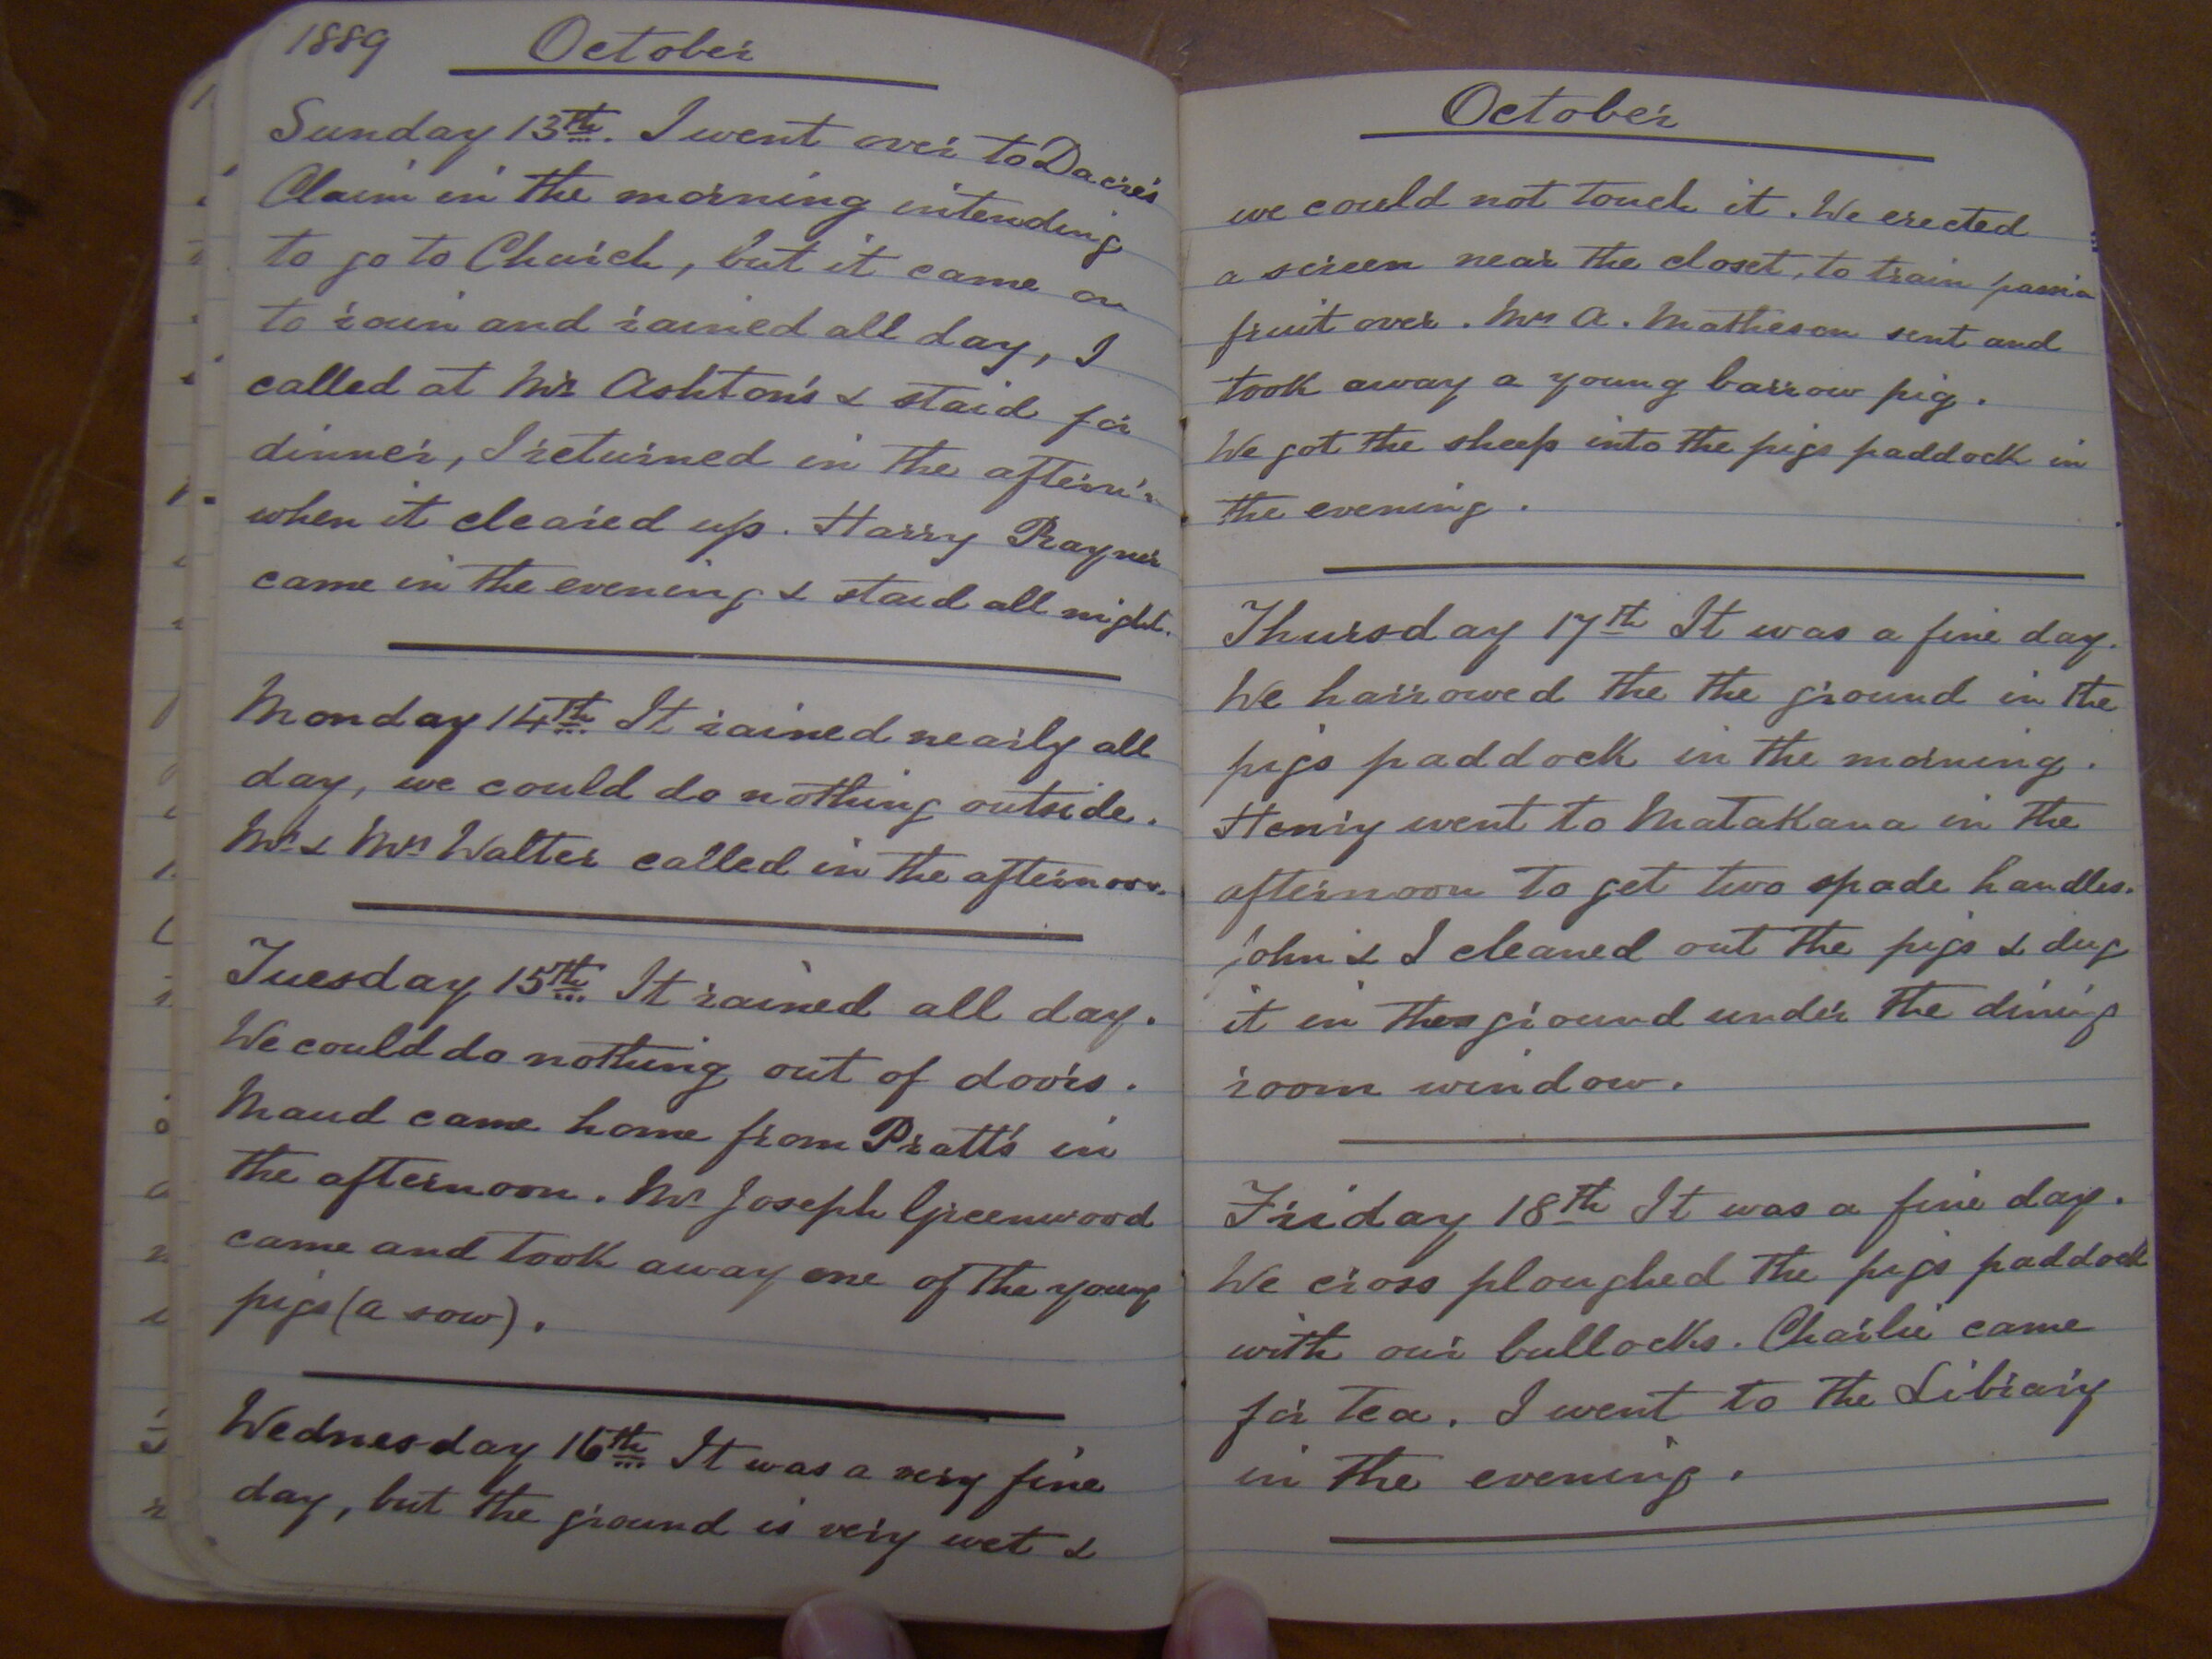 1889 October
Sunday 13th. I went over to Dacre's
Claim in the morning intending
to go to Church, but it came on
to rain and rained all day, I
called at Mr Ashton's & staid for
dinner, I returned in the aftern'n
when it cleared up. Harry Rayner
came in the evening & staid all night.
Monday 14th It rained nearly all
day, we could do nothing outside.
Mr & Mrs Walter called in the afternoon.
Tuesday 15th It rained all day.
We could do nothing out of doors.
Maud came home from Pratt's in
the afternoon. Mr Joseph Greenwood
came and took away one of the young
pigs (a sow).
Wednesday 16th It was a very fine
day, but the ground is very wet &
October
we could not touch it. We erected
a screen near the closet, to train
fruit over. Mrs A. Matheson sent and
took away a young barrow pig.
We got the sheep into the pigs paddock in
the evening.
Thursday 17th It was a fine day.
We harrowed the the ground in the
pigs paddock in the morning.
Henry went to Matakana in the
afternoon to get two spade handles.
John & I cleaned out the pigs & dug
it in the ground under the dining
room window.
Friday 18th It was a fine day.
We cross ploughed the pigs paddock
with our bullocks. Charlie came
for tea. I went to the Library
in the evening.